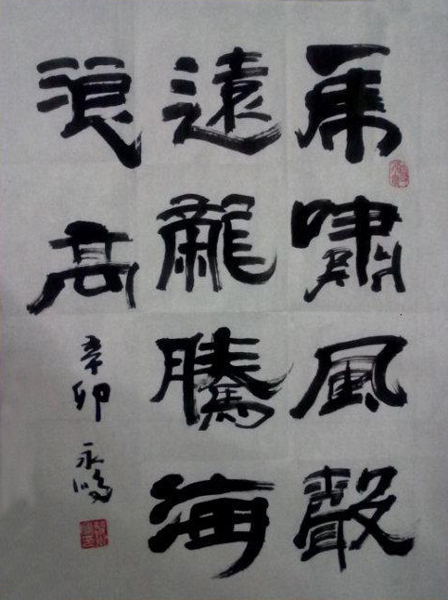 虎嘯風聲
遠龍騰海
浪高
辛卯 永鳴